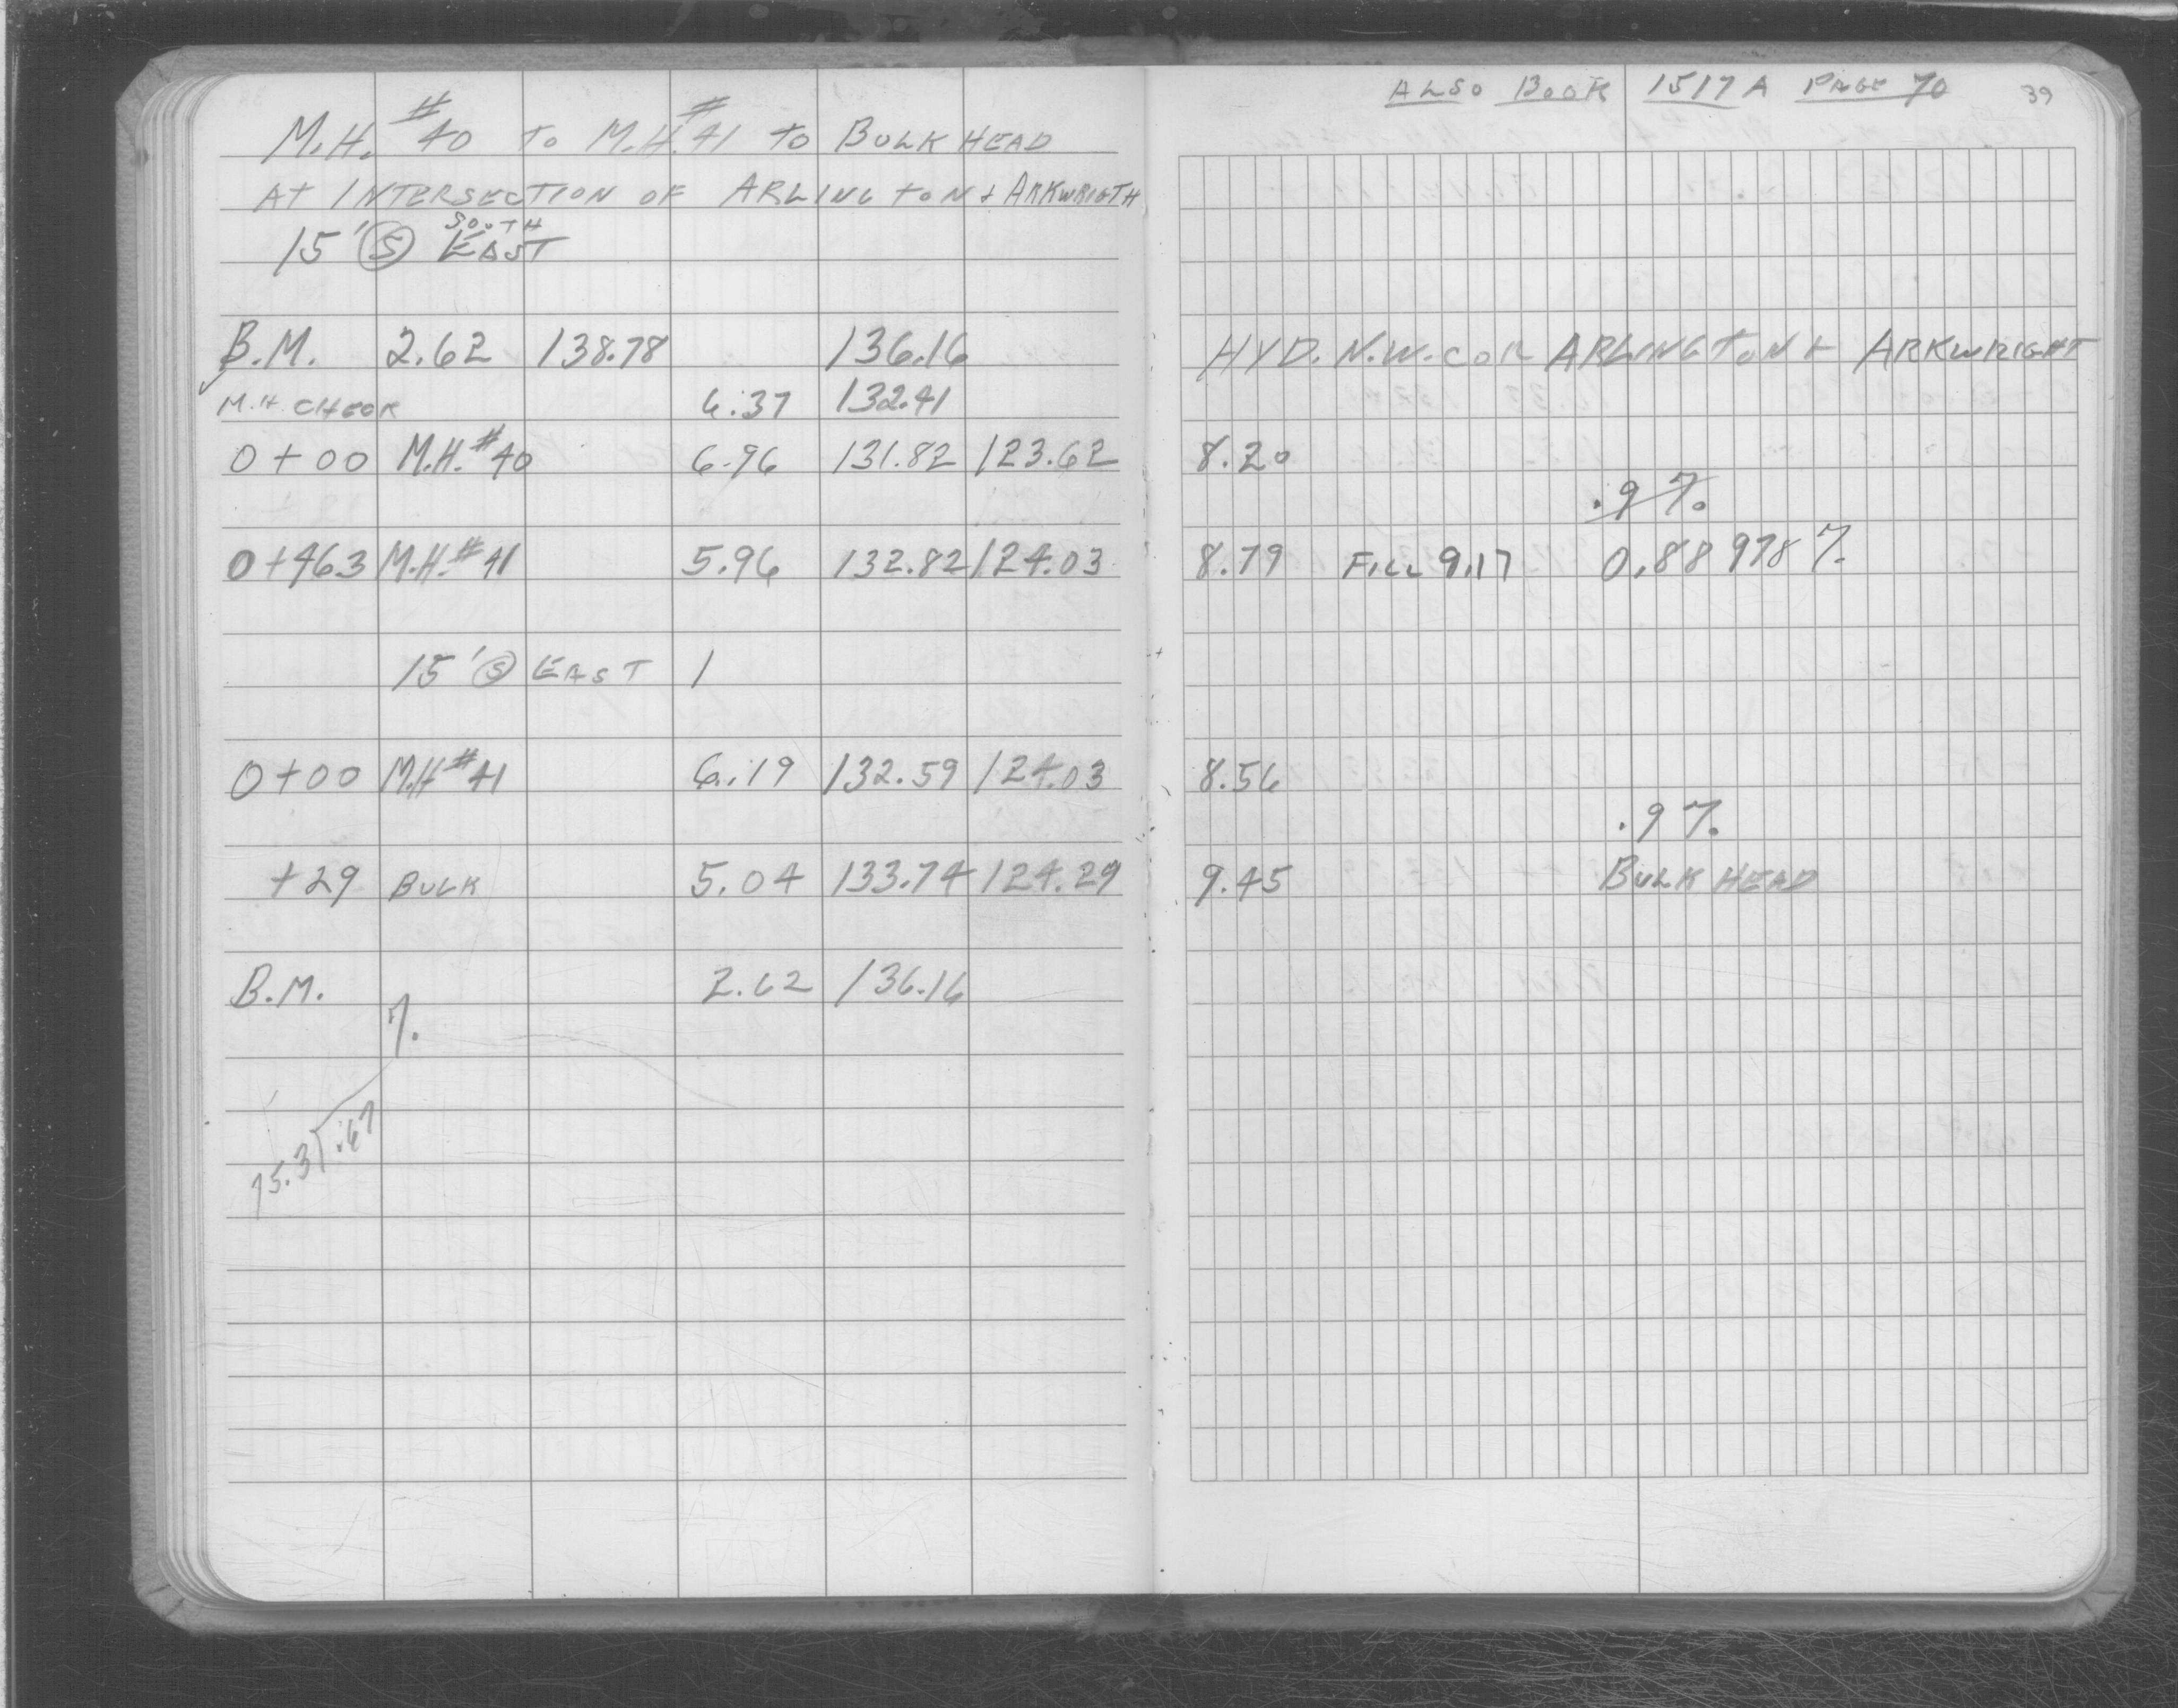 ALSO BOOK 1517A PAGE 70 39
M.H. #40 TO M.H. #41 TO BULKHEAD
AT INTERSECTION OF ARLINGTON + ARKWRIGTH
SOUTH
15' Ⓢ EAST
B.M. 2.62 138.78 136.16 HYD. N.W. COR ARLINGTON + ARKWRIGHT
M.H. CHECK 6.37 132.41
0+00 M.H. #40 6.96 131.82 123.62 8.20
.9%
0+463 M.H. #41 5.96 132.82 124.03 8.79 FILL 9.17 0.88978%
15' Ⓢ EAST 1
0+00 M.H #41 6.19 132.59 124.03 8.56
.9%
+29 BULK 5.04 133.74 124.29 9.45 BULKHEAD
B.M. 2.62 136.16
%